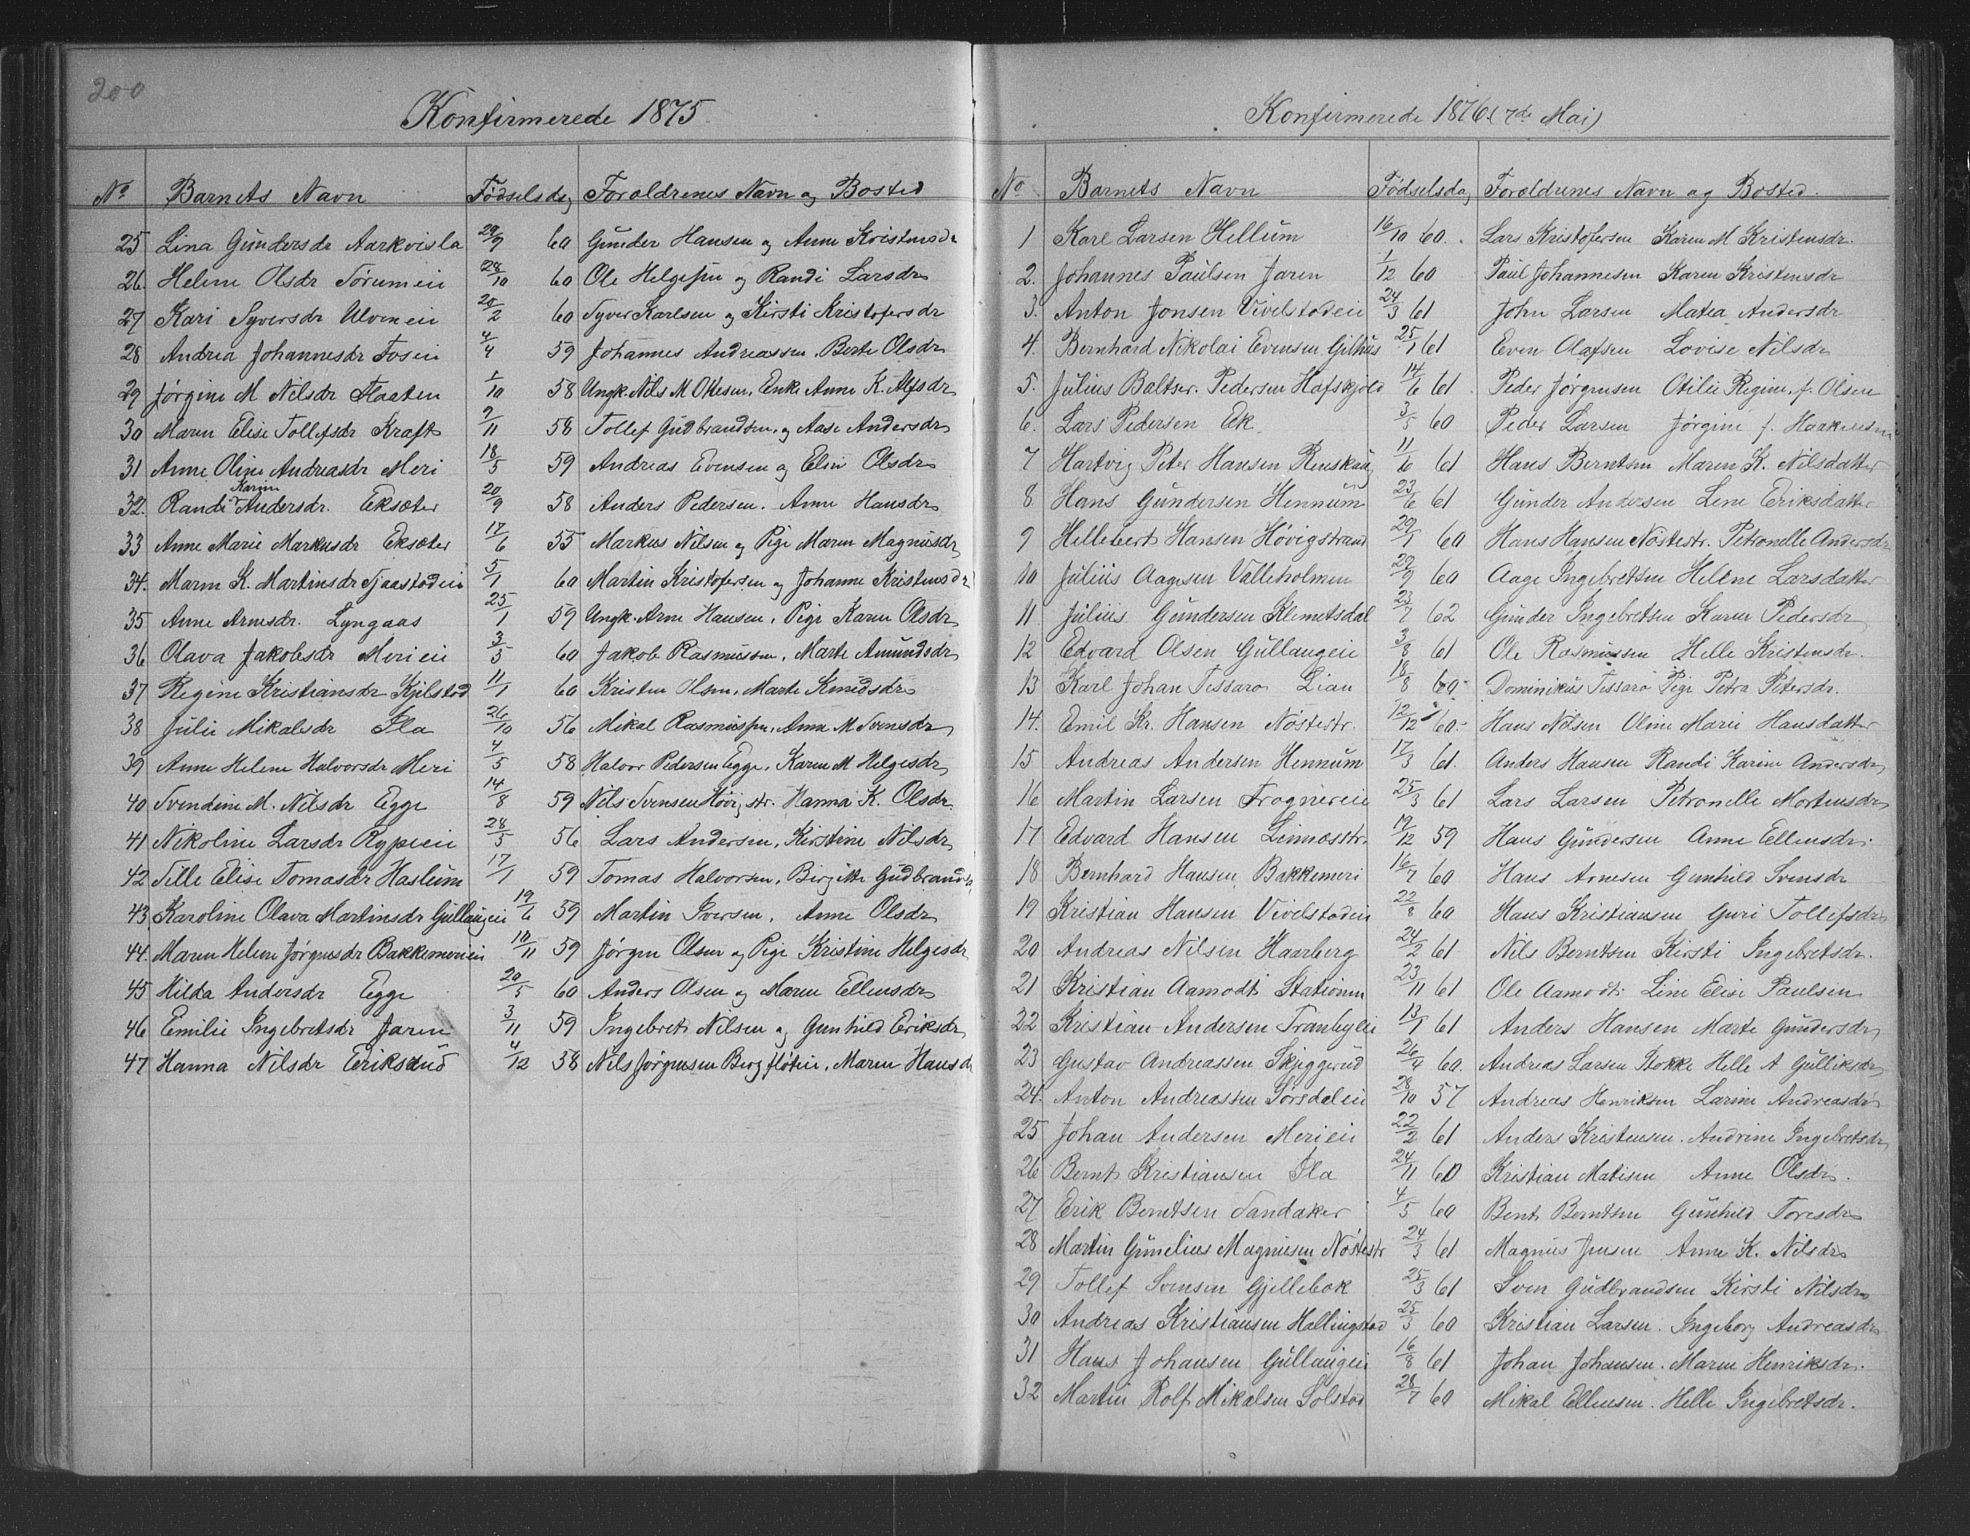 200
Konfirmerede 1875.
No Barnets Navn Fødselsdag Foroldrenes Navn og Bosted
25 Lina Gundersdr Aarkvisla 29/9 60 Gunder Hansen og Anne Kristensdr
26. Helene Olsdr Sørumeie 28/10 60 Ole Helgesen og Randi Larsdr
27 Kari Syversdr Ulveneie 20/2 60 Syver Karlsen og Kirsti Kristofersdr
28 Andrea Johannesdr Foseie 4/4 59 Johannes Andreassen, Berte Olsdr
29 Jørgine M Nilsdr Staaten 1/10 58 Ungk. Nils M Olsen, Enke Anne K. Alfsdr
30 Maren Elise Tollefsdr Kraft 9/11 58 Tollef Gudbrandsen og Aase Andersdr
31 Anne Oline Andreasdr Meri 18/5 59 Andreas Evensen og Elin Olsdr
32. Randi Karine Andersdr. Eksæter 20/9 58 Anders Pedersen. Anne Hansdr
33 Anne Marie Markusdr Eksæter 17/6 55 Markus Nilsen og Pige Maren Magnusdr
34. Maren K. Martinsdr Tjaastadeie 5/1 60 Martin Kristofersen og Johanne Kristensdr
35 Anne Arnesdr. Lyngaas 25/1 59 Ungk. Arne Hansen, Pige Karen Olsdr
36 Olava Jakobsdr Merieie 3/5 60 Jakob Rasmussen, Marte Amundsdr
37 Regine Kristiansdr Kjilstad 11/1 60 Kristen Olsen, Marte Knudsdr
38 Julie Mikalsdr Ila 26/10 56 Mikal Rasmussen, Anne M Svensdr
39 Anne Helene Halvorsdr Meri 4/5 58 Halvor Pedersen Egge, Karen M Helgesdr
40 Svendine M. Nilsdr Egge 14/8 59 Nils Svensen Høvig str. Hanna K. Olsdr
41 Nikoline Larsdr Rypeeie 28/5 56 Lars Andersen, Kirstine Nilsdr
42 Tille Elise Tomasdr Haslum 17/1 59 Tomas Halvorsen, Birgitte Gudbrandsdr
43. Karoline Olava Martinsdr Gullaugeie 19/6 59 Martin Iversen, Anne Olsdr
44. Maren Helene Jørgensdr Bakkemerieie 10/11 59 Jørgen Olsen og Pige Kristine Helgesdr
45 Hilda Andersdr Egge 20/5 60 Anders Olsen og Maren Ellensdr
46 Emilie Ingebretsdr Jaren 3/11 59 Ingebret Nilsen og Gunhild Eriksdr
47 Hanna Nilsdr Eriksrud 4/12 58 Nils Jørgensen Bergfløteie, Maren Hansdr
Konfirmerede 1876 (7de Mai)
No. Barnets Navn Fødselsdag Foroldrenes Navn og Bosted.
1 Karl Larsen Hellum 16/10 60. Lars Kristofersen Karen M Kristensdr.
2. Johannes Paulsen Jaren 1/12 60 Paul Johannesen Karen Kristensdr
3. Anton Jonsen Vivelstadeie 24/3 61 John Larsen Matea Andersdr
4. Bernhard Nikolai Evensen Gilhus 25/1 61 Even Olafsen Lovise Nilsdr
5. Julius Baltser. Pedersen Hafskjold 14/6 61. Peder Jørgensen Otilie Regine f. Olsen
6. Lars Pedersen Ek 3/5 60 Peder Larsen Jørgine f. Haakensen
7 Hartvig Peter Hansen Renskaug 11/6 61 Hans Berntsen Maren K. Nilsdatter
8 Hans Gundersen Hennum 23/6 61 Gunder Andersen Lene Eriksdatter
9 Hellebert Hansen Høvigstrand 29/1 60 Hans Hansen Nøstestr. Petronelle Andersdr
10 Julius Aagesen Valleholmen 29/9 60 Aage Ingebretsen Helene Larsdatter
11. Julius Gundersen Klemetsdal 23/7 62 Gunder Ingebretsen Karen Pedersdr
12 Edvard Olsen Gullaugeie 3/8 61 Ole Rasmussen Helle Kristensdr.
13 Karl Johan Tessaro Lian 18/8 60. Dominikus Tessaro Pige Petra Petersdr.
14. Emil Kr. Hansen Nøstestr. 12/12 60. Hans Nilsen Oline Marie Hansdatter
15 Andreas Andersen Hennum 17/3 61. Anders Hansen Randi Karine Andersdr
16 Martin Larsen Frognereie 25/3 61 Lars Larsen Petronelle Mortensdr
17 Edvard Hansen Linnæsstr. 19/12 59 Hans Gundersen Anne Ellensdr.
18 Bernhard Hansen Bakkemeri 16/7 60 Hans Arnesen Gunhild Svensdr
19 Kristian Hansen Vivelstadeie 22/8 60 Hans Kristiansen Guri Tollefsdr
20 Andreas Nilsen Haarberg 24/2 61 Nils Berntsen Kirsti Ingebretsdr.
21 Kristian Aamodt Stationen 23/11 61 Ole Aamodt Line Elise Paulsen
22 Kristian Andersen Tranbyeie 13/1 61 Anders Hansen Marte Gundersdr
23 Gustav Andreassen Skjeggerud 26/4 60. Andreas Larsen Stokke Helle A Gulliksdr
24. Anton Andreassen Sørsdaleie 28/10 57 Andreas Henriksen Larine Andreasdr
25 Johan Andersen Merieie 22/2 61 Anders Kristensen. Andrine Ingebretsdr
26 Bernt Kristiansen Ila 24/11 60 Kristian Matisen Anne Olsdr.
27 Erik Berntsen Sandaker 4/5 60 Bent Berntsen Gunhild Toresdr
28 Martin Gunelius Magnusen Nøstestr 24/3 61 Magnus Jensen Anne K. Nilsdr
29 Tollef Svensen Gjellebæk 25/3 61 Sven Gudbrandsen Kirsti Nilsdr
30 Andreas Kristiansen Hallingstad 25/3 60 Kristian Larsen. Ingeborg Andreasdr
31 Hans Johansen Gullaugeie 16/8 61 Johan Johansen. Maren Henriksdr.
32 Martin Rolf Mikalsen Solstad 28/7 60 Mikal Ellensen. Helle Ingebretsdr.